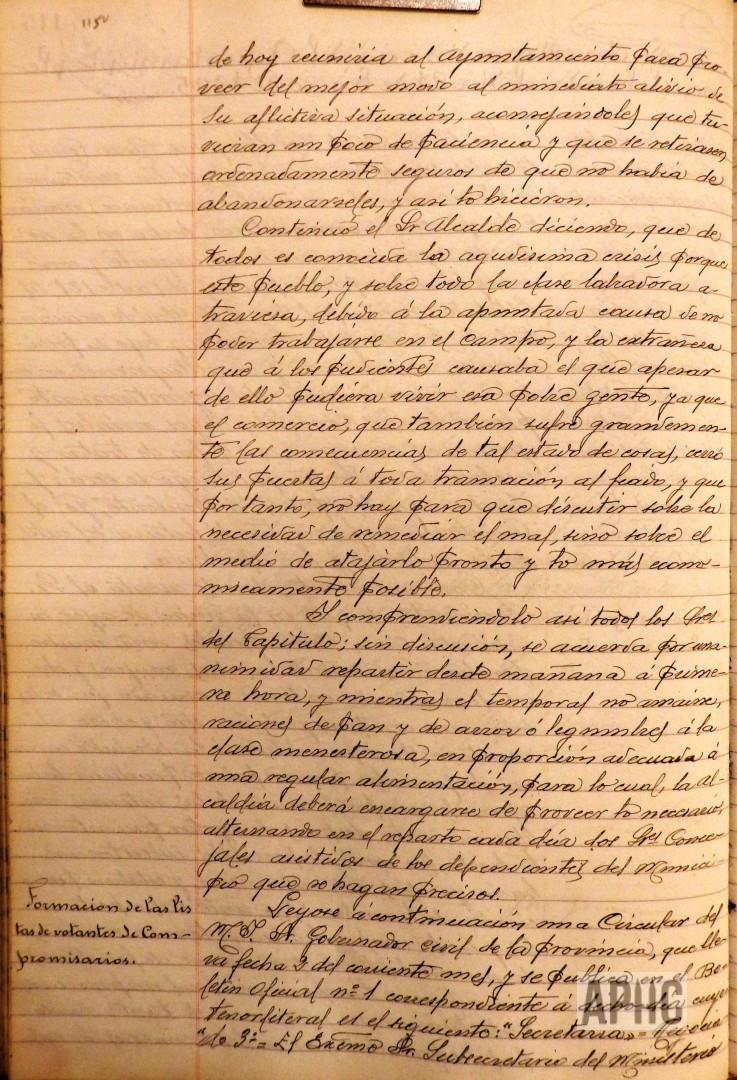 115v
de hoy reuniria al Ayuntamiento para pro
veer del mejor modo al inmediato alivio de
su aflictiva situación, aconsejándoles que tu
vieran un poco de paciencia y que se retirasen
ordenadamente seguros de que no habia de
abandonarseles, y asi lo hicieron.
Continuó el Sr Alcalde diciendo, que de
todos es conocida la agudisima crisis porque
este pueblo, y sobre todo la clase labradora a-
traviesa, debido á la apuntada causa de no
poder trabajarse en el campo, y la extrañeza
que á los pudientes causaba el que apesar
de ello pudiera vivir esa pobre gente, ya que
el comercio, que también sufre grandemen-
te las consecuencias de tal estado de cosas, cerró
sus puertas á toda transación al fiado, y que
por tanto, no hay para que discutir sobre la
necesidad de remediar el mal, sino sobre el
medio de atajarlo pronto y lo más econo-
micamente posible.
Y comprendiendolo asi todos los Sres
del Capitulo; sin discusión, se acuerda por una
nimidad repartir desde mañana á prime-
ra hora, y mientras el temporal no amaine,
raciones de pan y de arroz ó legumbres á la
clase menesterosa, en proporción adecuada á
una regular alimentación, para lo cual, la al-
caldia deberá encargarse de proveer lo necesario,
alternando en el reparto cada dia dos Sres Conce-
jales asistidos de los dependientes del Munici-
pio que se hagan precisos.
Formacion de las lis
tas de votantes de Com-
promisarios.
Leyose á continuación una Circular del
M. I. Sr. Gobernador civil de la provincia, que lle-
va fecha 2 del corriente mes, y se publica en el Bo-
letin Oficial nº 1 correspondiente á cuyo
tenor literal es el siguiente: "Secretaria = Negocia
"do 3º = El Excmo Sr. Subsecretario del Ministerio
APHC